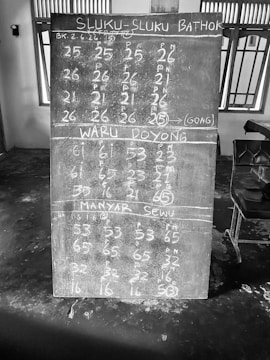 SLUKU-SLUKU BATHOK
BK. 2 6 2 6
25 25 25 26
26 26 26 21
21 21 21 26
26 26 26 25 → (GONG)
WARU DOYONG
61 61 53 23
61 65 23
16 21 65
MANYAR SEWU
53 53 53 65
65 65 65 16
32 32 32 16
16 16 16 5